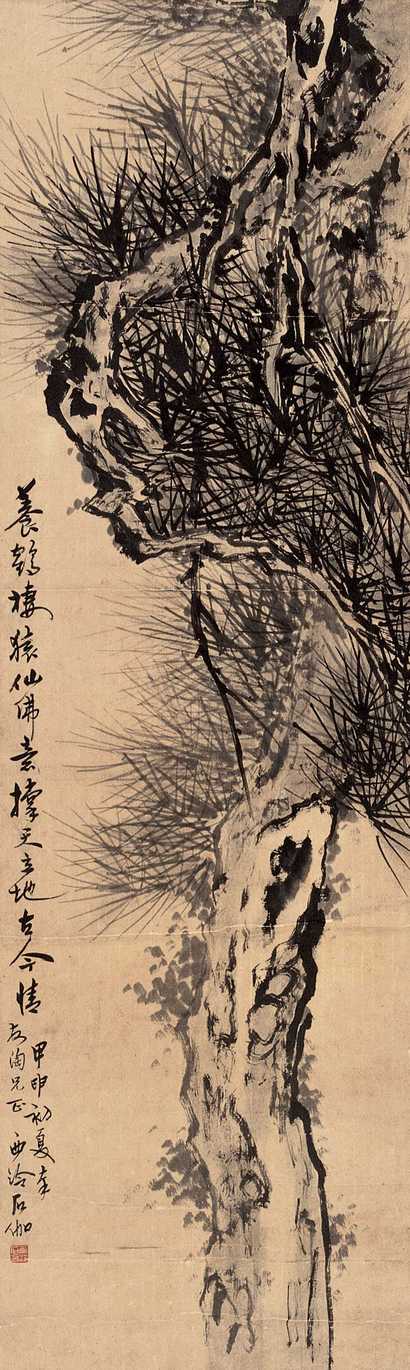 養鶴棲猿仙佛意撐天立地古今情
甲申初夏奉
友陶兄正 西泠石伽